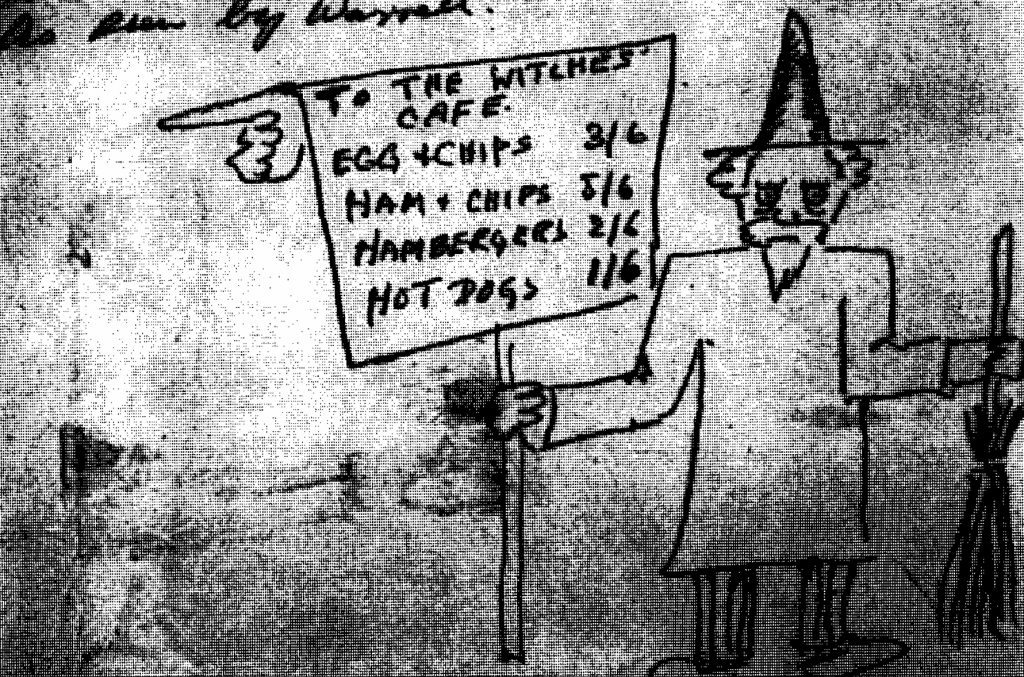 As seen by Warrell.
TO THE WITCHES'
CAFE.
EGG + CHIPS 3/6
HAM + CHIPS 5/6
HAMBERGERS 2/6
HOT DOGS 1/6